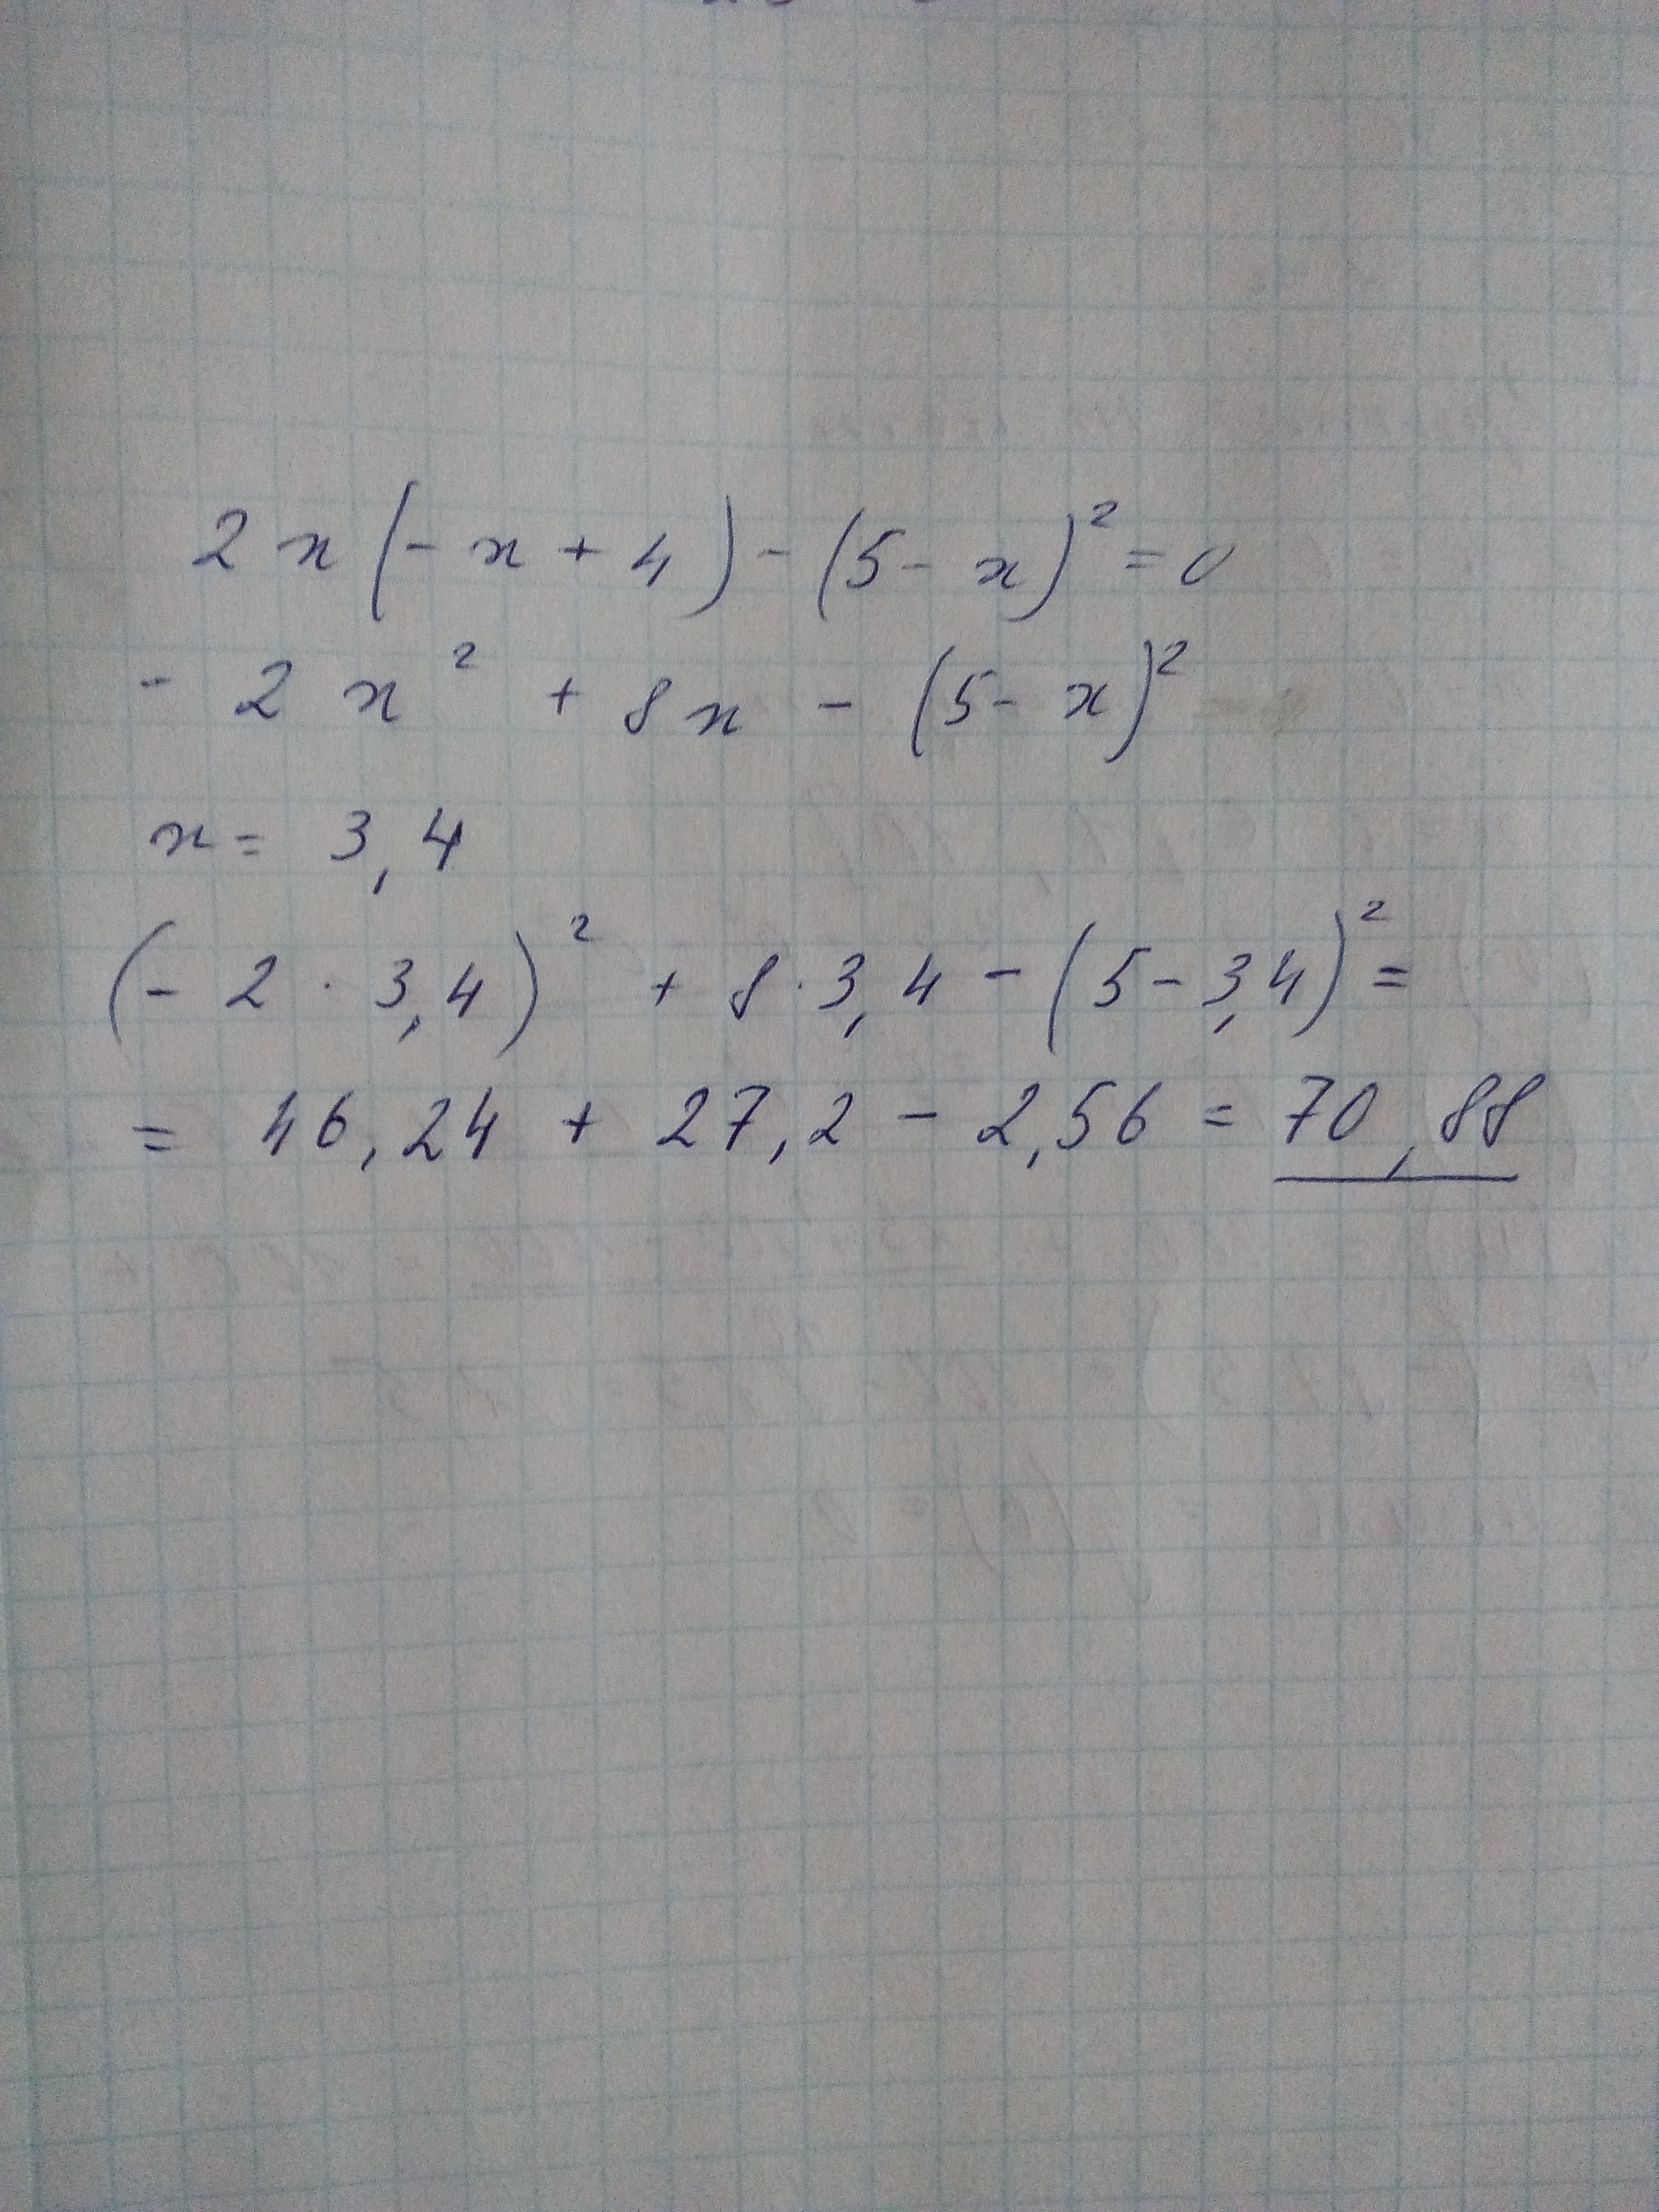 2x(-x+4)-(5-x)²=0
-2x²+8x-(5-x)²
x=3,4
(-2·3,4)²+8·3,4-(5-3,4)²=
=46,24+27,2-2,56=70,88